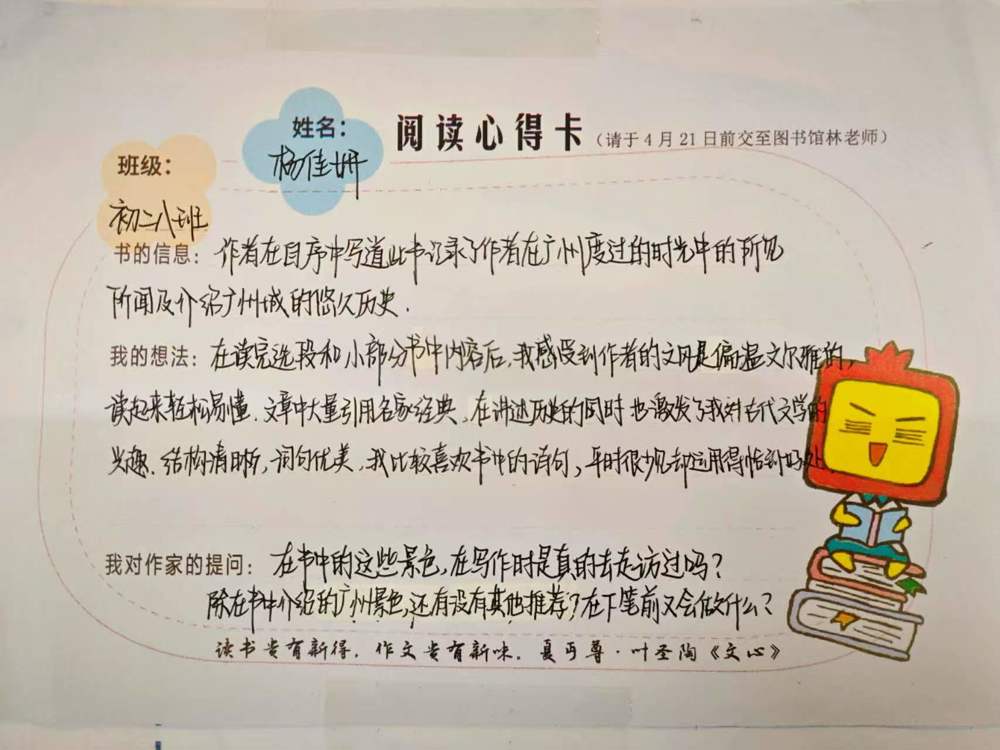 阅读心得卡（请于4月21日前交至图书馆林老师）
姓名：
杨佳妍
班级：
初二八班
书的信息：作者在自序中写道此书记录了作者在广州度过的时光中的所见
所闻及介绍广州城的悠久历史.
我的想法：在读完选段和小部分书中内容后,我感受到作者的文风是偏温文尔雅的,
读起来轻松易懂.文章中大量引用名家经典.在讲述历史的同时也激发了我对古代文学的
兴趣.结构清晰,词句优美,我比较喜欢书中的诗句,平时很少见却运用得恰到好处.
我对作家的提问：在书中的这些景色,在写作时是真的去走访过吗?
除在书中介绍的广州景色,还有没有其他推荐?在下笔前又会做什么?
读书贵有新得，作文贵有新味。夏丏尊·叶圣陶《文心》